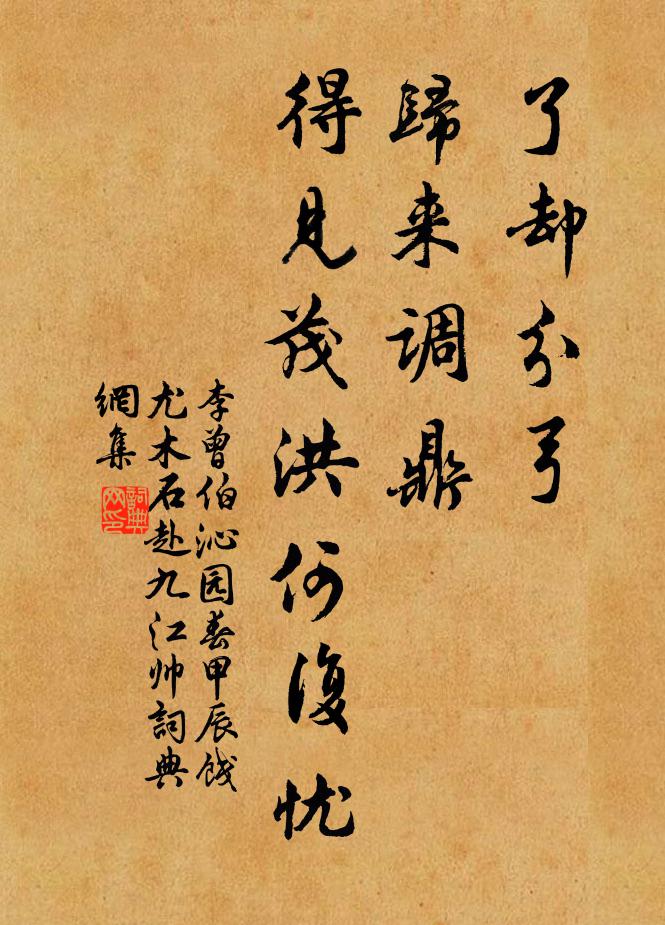 了却分弓
歸来调鼎
得見茂洪何復忧
李曾伯沁园春甲辰饯
尤木石赴九江帅詞典
網集
詞典
网印